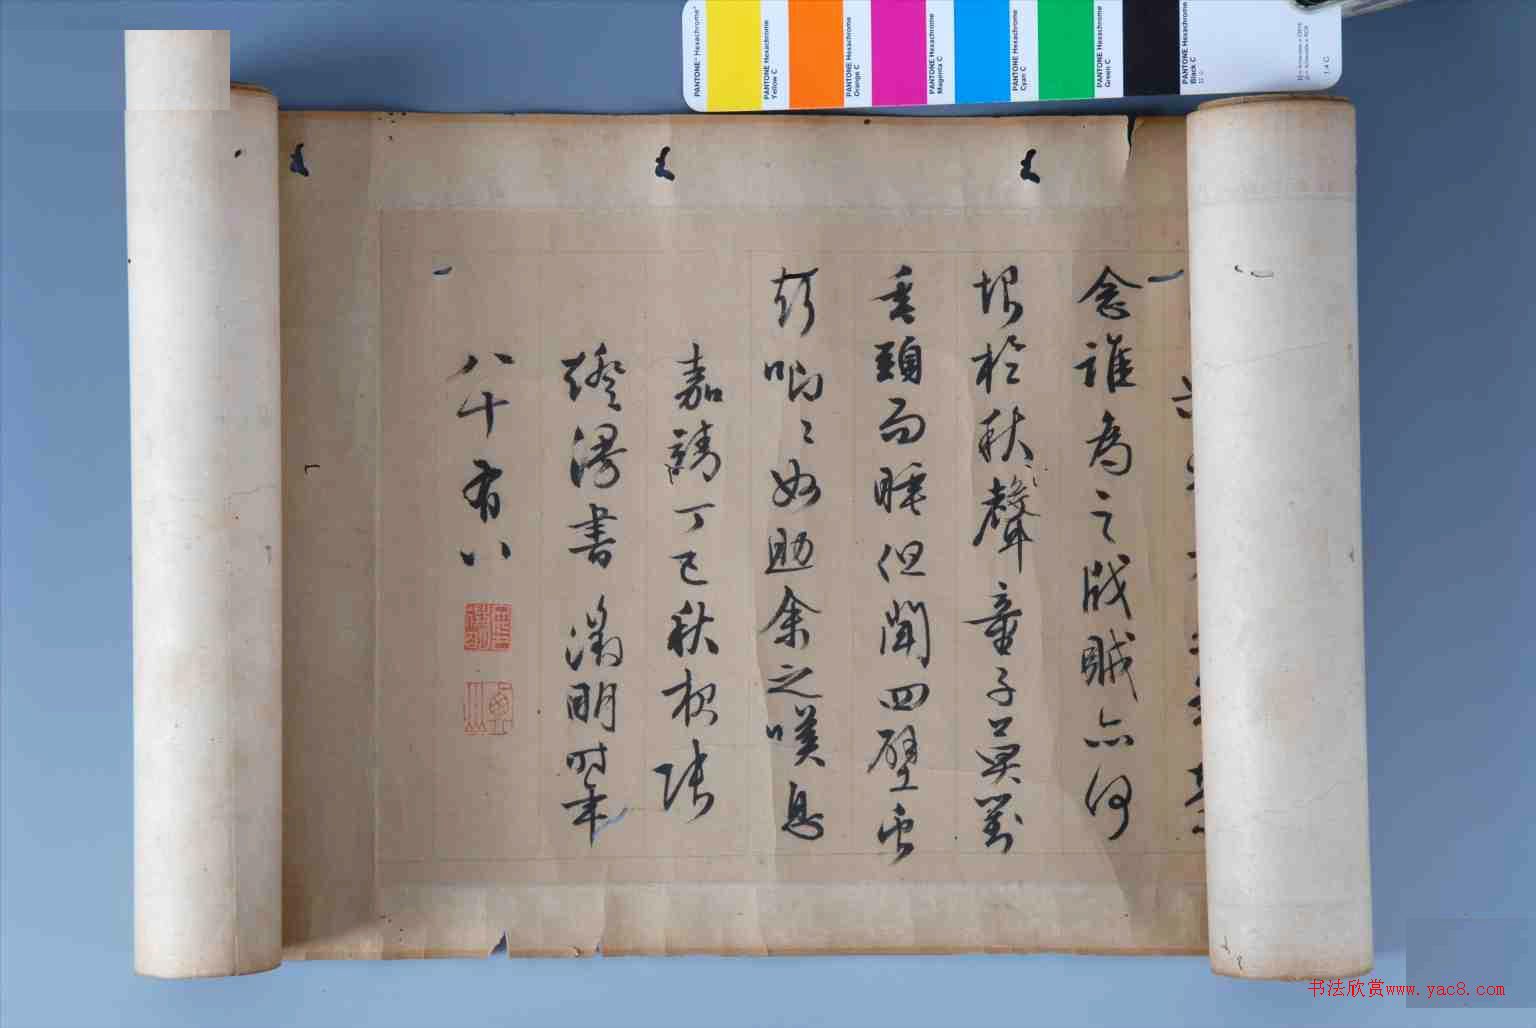 PANTONE® Hexachrome®
PANTONE Hexachrome
Yellow C
PANTONE Hexachrome
Orange C
PANTONE Hexachrome
Magenta C
PANTONE Hexachrome
Cyan C
PANTONE Hexachrome
Green C
PANTONE Hexachrome
Black C
1.4 C
念誰為之戕賊亦何
恨於秋聲童子莫對
垂頭而睡但聞四壁虫
聲唧〻如助余之嘆息
嘉靖丁巳秋夜張
燈漫書徵明时年
八十有八
书法欣赏www.yac8.com